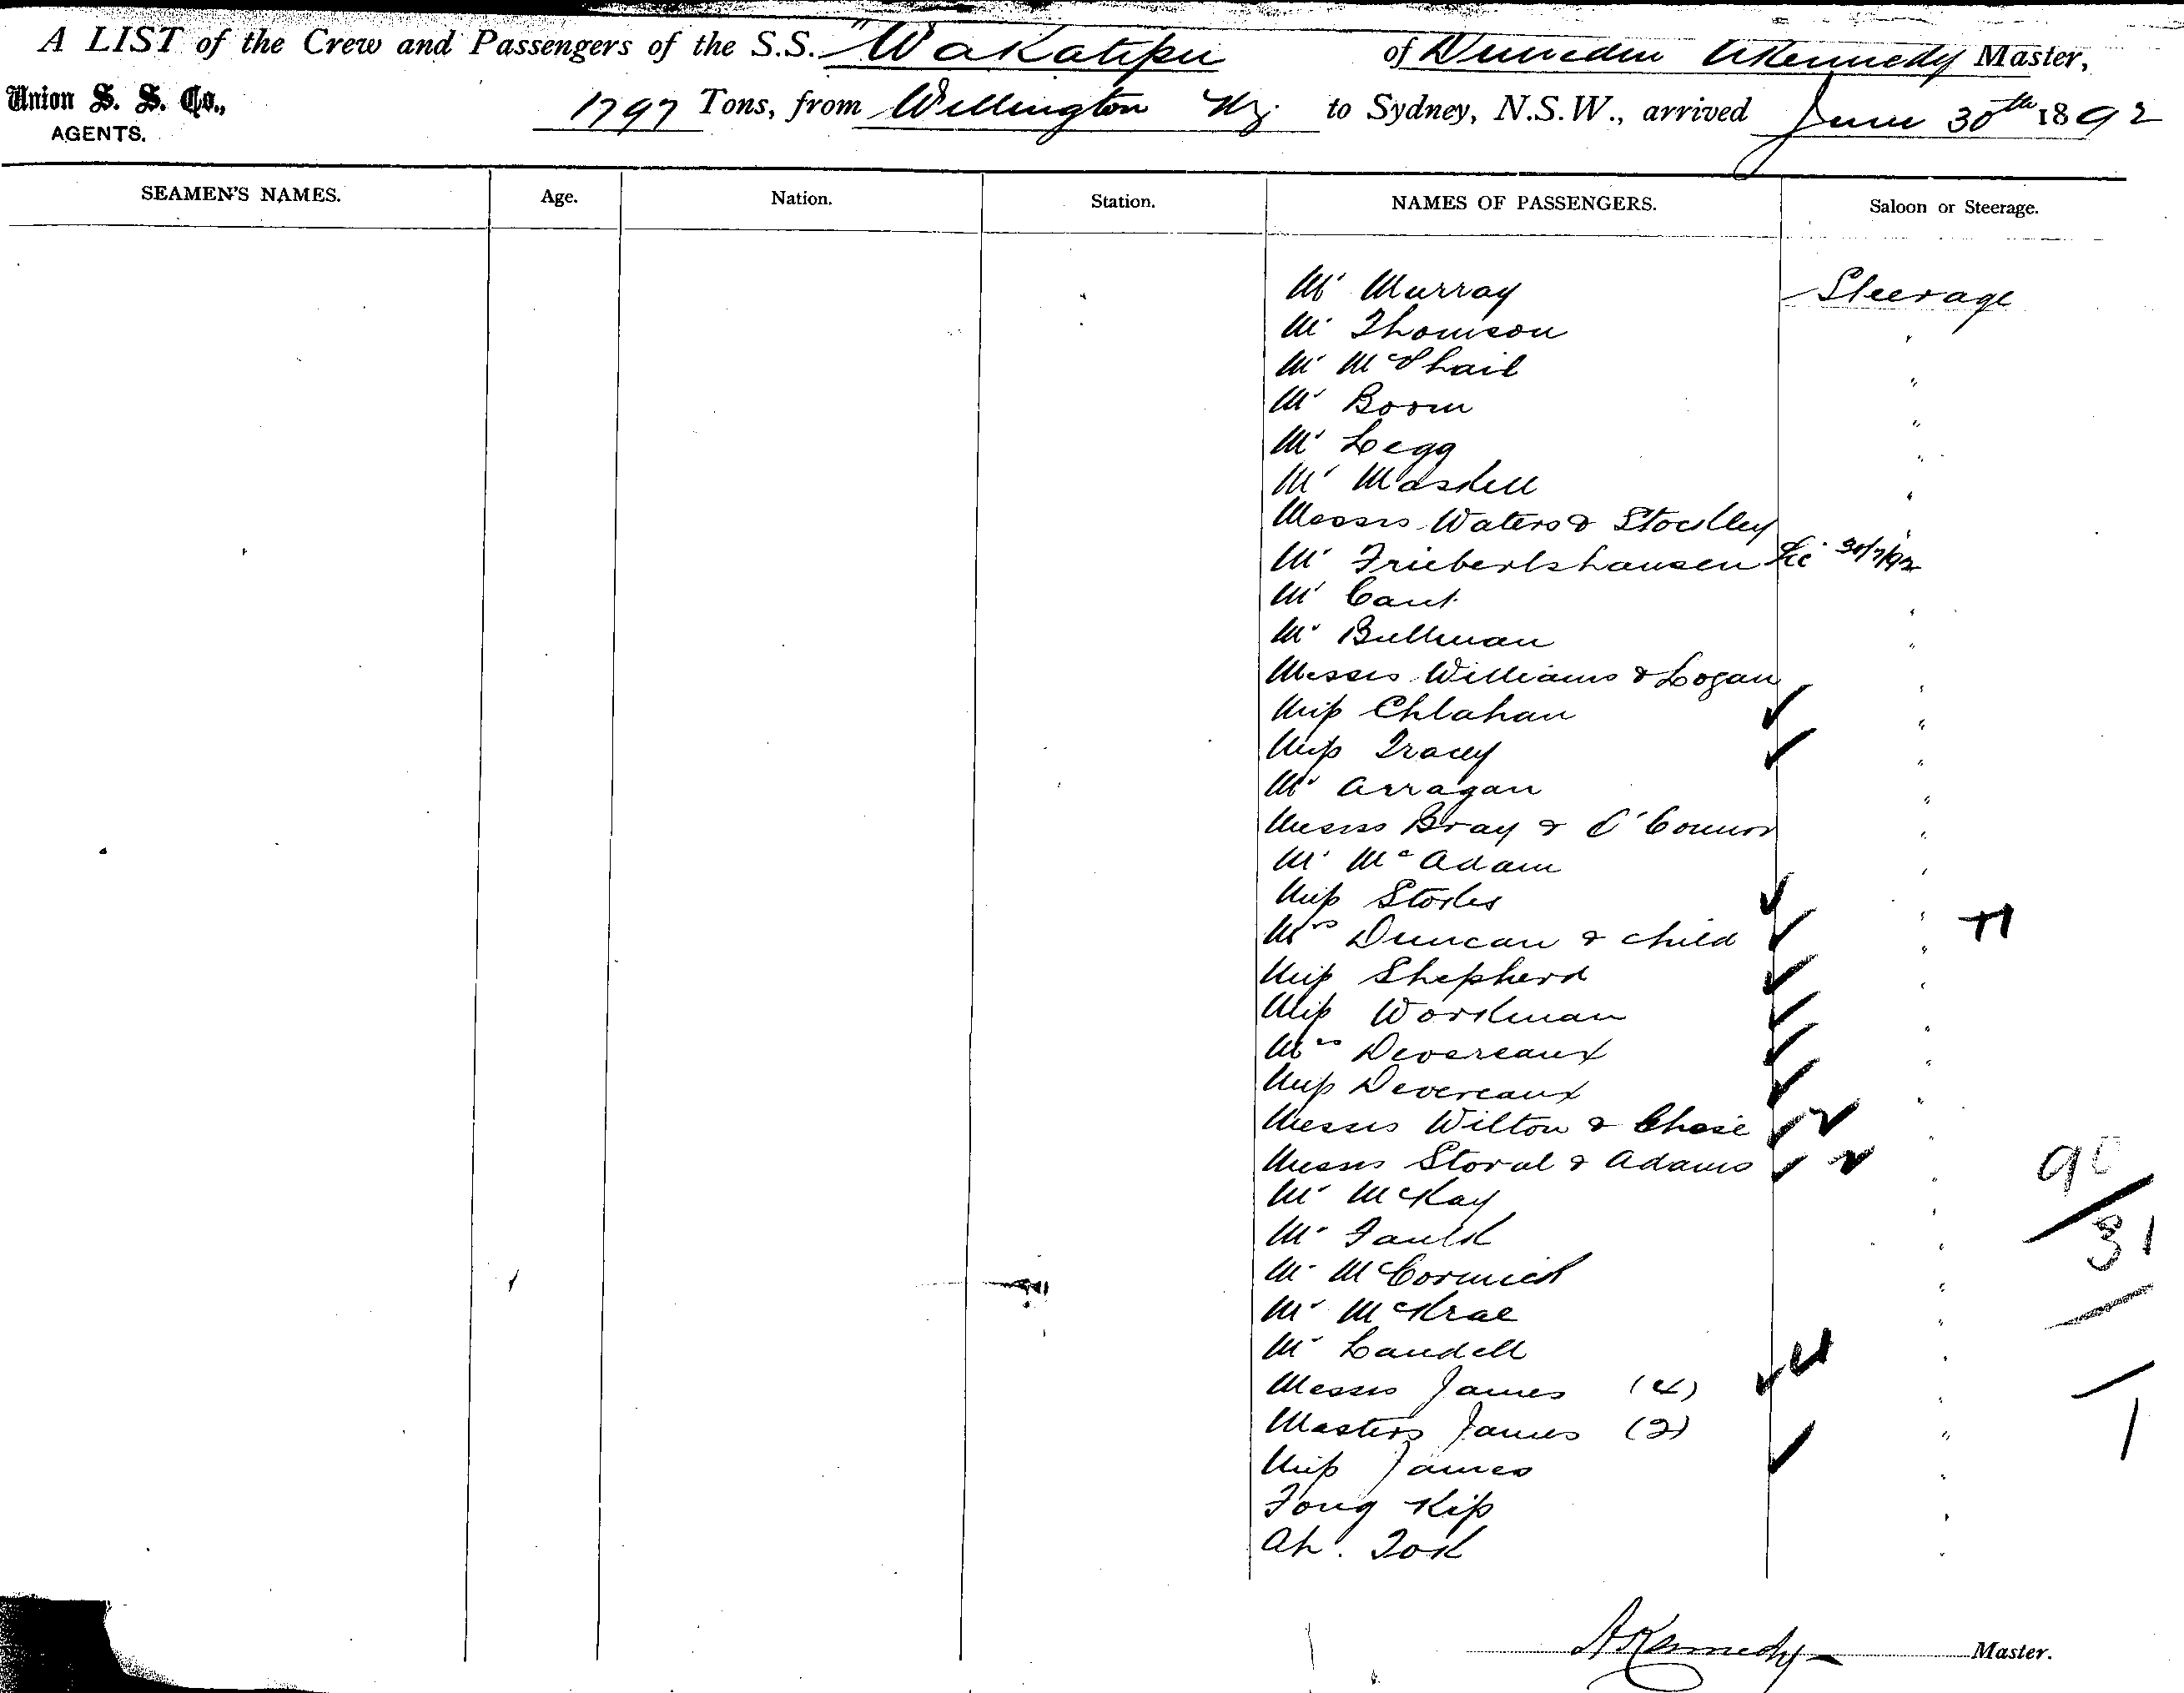 A LIST of the Crew and Passengers of the S.S. "Wakatipu of Dunedin A Kennedy Master,
Union S. S. Co., 1797 Tons, from Wellington NZ. to Sydney, N.S.W., arrived June 30th 1892
AGENTS.
SEAMEN'S NAMES. Age. Nation. Station. NAMES OF PASSENGERS. Saloon or Steerage.
Mr Murray Steerage
Mr Thomson "
Mr McPhail "
Mr Boorn "
Mr Legg "
Mr Maskell "
Messrs Waters & Stockley "
Mr Friebertshausen 30/7/92
Mr Cant "
Mr Bullman "
Messrs Williams & Logan "
Miss Chlahan "
Miss Tracey "
Mr Arragan "
Messrs Bray & O'Connor "
Mr McAdam "
Miss Stokes "
Mrs Duncan & child "
Miss Shepherd "
Miss Workman "
Mrs Devereaux "
Miss Devereaux "
Messrs Wilton & Chase 2 "
Messrs Storal & Adams 2 "
Mr McKay "
Mr Faulk "
Mr McCormick "
Mr McKrae "
Mr Landell "
Messrs James (4) 4 "
Masters James (2) "
Miss James "
Fong Kip "
Ah. Tok "
90
31
1
A Kennedy Master.